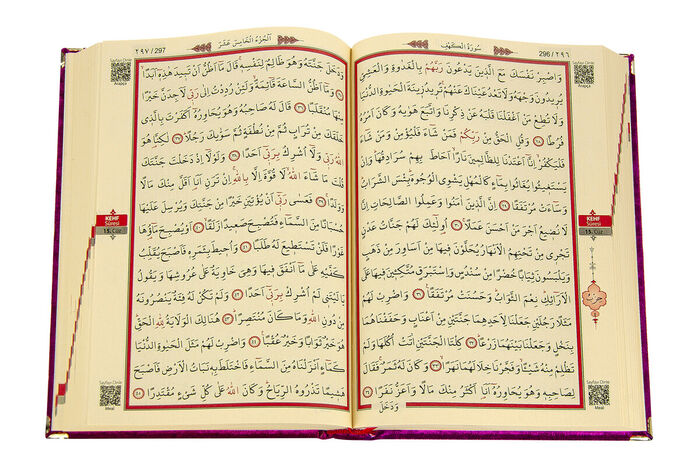 سُورَةُ الْكَهْفِ
296 / ٢٩٦
وَاصْبِرْ نَفْسَكَ مَعَ الَّذِينَ يَدْعُونَ رَبَّهُمْ بِالْغَدٰوةِ وَالْعَشِيِّ
يُرِيدُونَ وَجْهَهُ وَلَا تَعْدُ عَيْنَاكَ عَنْهُمْ تُرِيدُ زِينَةَ الْحَيٰوةِ الدُّنْيَا
وَلَا تُطِعْ مَنْ اَغْفَلْنَا قَلْبَهُ عَنْ ذِكْرِنَا وَاتَّبَعَ هَوٰيهُ وَكَانَ اَمْرُهُ
فُرُطًا ﴿٢٨﴾ وَقُلِ الْحَقُّ مِنْ رَبِّكُمْ فَمَنْ شَاءَ فَلْيُؤْمِنْ وَمَنْ شَاءَ
فَلْيَكْفُرْ اِنَّا اَعْتَدْنَا لِلظَّالِمِينَ نَارًا اَحَاطَ بِهِمْ سُرَادِقُهَا وَاِنْ
يَسْتَغِيثُوا يُغَاثُوا بِمَاءٍ كَالْمُهْلِ يَشْوِي الْوُجُوهَ بِئْسَ الشَّرَابُ
وَسَاءَتْ مُرْتَفَقًا ﴿٢٩﴾ اِنَّ الَّذِينَ اٰمَنُوا وَعَمِلُوا الصَّالِحَاتِ اِنَّا
لَا نُضِيعُ اَجْرَ مَنْ اَحْسَنَ عَمَلًا ﴿٣٠﴾ اُولٰئِكَ لَهُمْ جَنَّاتُ عَدْنٍ
تَجْرِي مِنْ تَحْتِهِمُ الْاَنْهَارُ يُحَلَّوْنَ فِيهَا مِنْ اَسَاوِرَ مِنْ ذَهَبٍ
وَيَلْبَسُونَ ثِيَابًا خُضْرًا مِنْ سُنْدُسٍ وَاِسْتَبْرَقٍ مُتَّكِئِينَ فِيهَا عَلَى
الْاَرَائِكِ نِعْمَ الثَّوَابُ وَحَسُنَتْ مُرْتَفَقًا ﴿٣١﴾ وَاضْرِبْ لَهُمْ
مَثَلًا رَجُلَيْنِ جَعَلْنَا لِاَحَدِهِمَا جَنَّتَيْنِ مِنْ اَعْنَابٍ وَحَفَفْنَاهُمَا
بِنَخْلٍ وَجَعَلْنَا بَيْنَهُمَا زَرْعًا ﴿٣٢﴾ كِلْتَا الْجَنَّتَيْنِ اٰتَتْ اُكُلَهَا وَلَمْ
تَظْلِمْ مِنْهُ شَيْئًا وَفَجَّرْنَا خِلَالَهُمَا نَهَرًا ﴿٣٣﴾ وَكَانَ لَهُ ثَمَرٌ فَقَالَ
لِصَاحِبِهِ وَهُوَ يُحَاوِرُهُ اَنَا اَكْثَرُ مِنْكَ مَالًا وَاَعَزُّ نَفَرًا ﴿٣٤﴾
وَدَخَلَ
Sayfayı Dinle
Arapça
KEHF
Sûresi
15. Cüz
حزب
Sayfayı Dinle
Meal
اَلْجُزْءُ الْخَامِسَ عَشَرَ
٢٩٧ / 297
وَدَخَلَ جَنَّتَهُ وَهُوَ ظَالِمٌ لِنَفْسِهِ قَالَ مَا اَظُنُّ اَنْ تَبِيدَ هٰذِهِ اَبَدًا
﴿٣٥﴾ وَمَا اَظُنُّ السَّاعَةَ قَائِمَةً وَلَئِنْ رُدِدْتُ اِلٰى رَبِّي لَاَجِدَنَّ خَيْرًا
مِنْهَا مُنْقَلَبًا ﴿٣٦﴾ قَالَ لَهُ صَاحِبُهُ وَهُوَ يُحَاوِرُهُ اَكَفَرْتَ بِالَّذِي
خَلَقَكَ مِنْ تُرَابٍ ثُمَّ مِنْ نُطْفَةٍ ثُمَّ سَوّٰيكَ رَجُلًا ﴿٣٧﴾ لٰكِنَّا هُوَ
اللّٰهُ رَبِّي وَلَا اُشْرِكُ بِرَبِّي اَحَدًا ﴿٣٨﴾ وَلَوْلَا اِذْ دَخَلْتَ جَنَّتَكَ
قُلْتَ مَا شَاءَ اللّٰهُ لَا قُوَّةَ اِلَّا بِاللّٰهِ اِنْ تَرَنِ اَنَا اَقَلَّ مِنْكَ مَالًا
وَوَلَدًا ﴿٣٩﴾ فَعَسٰى رَبِّي اَنْ يُؤْتِيَنِ خَيْرًا مِنْ جَنَّتِكَ وَيُرْسِلَ عَلَيْهَا
حُسْبَانًا مِنَ السَّمَاءِ فَتُصْبِحَ صَعِيدًا زَلَقًا ﴿٤٠﴾ اَوْ يُصْبِحَ مَاؤُهَا
غَوْرًا فَلَنْ تَسْتَطِيعَ لَهُ طَلَبًا ﴿٤١﴾ وَاُحِيطَ بِثَمَرِهِ فَاَصْبَحَ يُقَلِّبُ
كَفَّيْهِ عَلٰى مَا اَنْفَقَ فِيهَا وَهِيَ خَاوِيَةٌ عَلٰى عُرُوشِهَا وَيَقُولُ
يَا لَيْتَنِي لَمْ اُشْرِكْ بِرَبِّي اَحَدًا ﴿٤٢﴾ وَلَمْ تَكُنْ لَهُ فِئَةٌ يَنْصُرُونَهُ
مِنْ دُونِ اللّٰهِ وَمَا كَانَ مُنْتَصِرًا ﴿٤٣﴾ هُنَالِكَ الْوَلَايَةُ لِلّٰهِ الْحَقِّ
هُوَ خَيْرٌ ثَوَابًا وَخَيْرٌ عُقْبًا ﴿٤٤﴾ وَاضْرِبْ لَهُمْ مَثَلَ الْحَيٰوةِ الدُّنْيَا
كَمَاءٍ اَنْزَلْنَاهُ مِنَ السَّمَاءِ فَاخْتَلَطَ بِهِ نَبَاتُ الْاَرْضِ فَاَصْبَحَ
هَشِيمًا تَذْرُوهُ الرِّيَاحُ وَكَانَ اللّٰهُ عَلٰى كُلِّ شَيْءٍ مُقْتَدِرًا ﴿٤٥﴾
Sayfayı Dinle
Arapça
KEHF
Sûresi
15. Cüz
Sayfayı Dinle
Meal